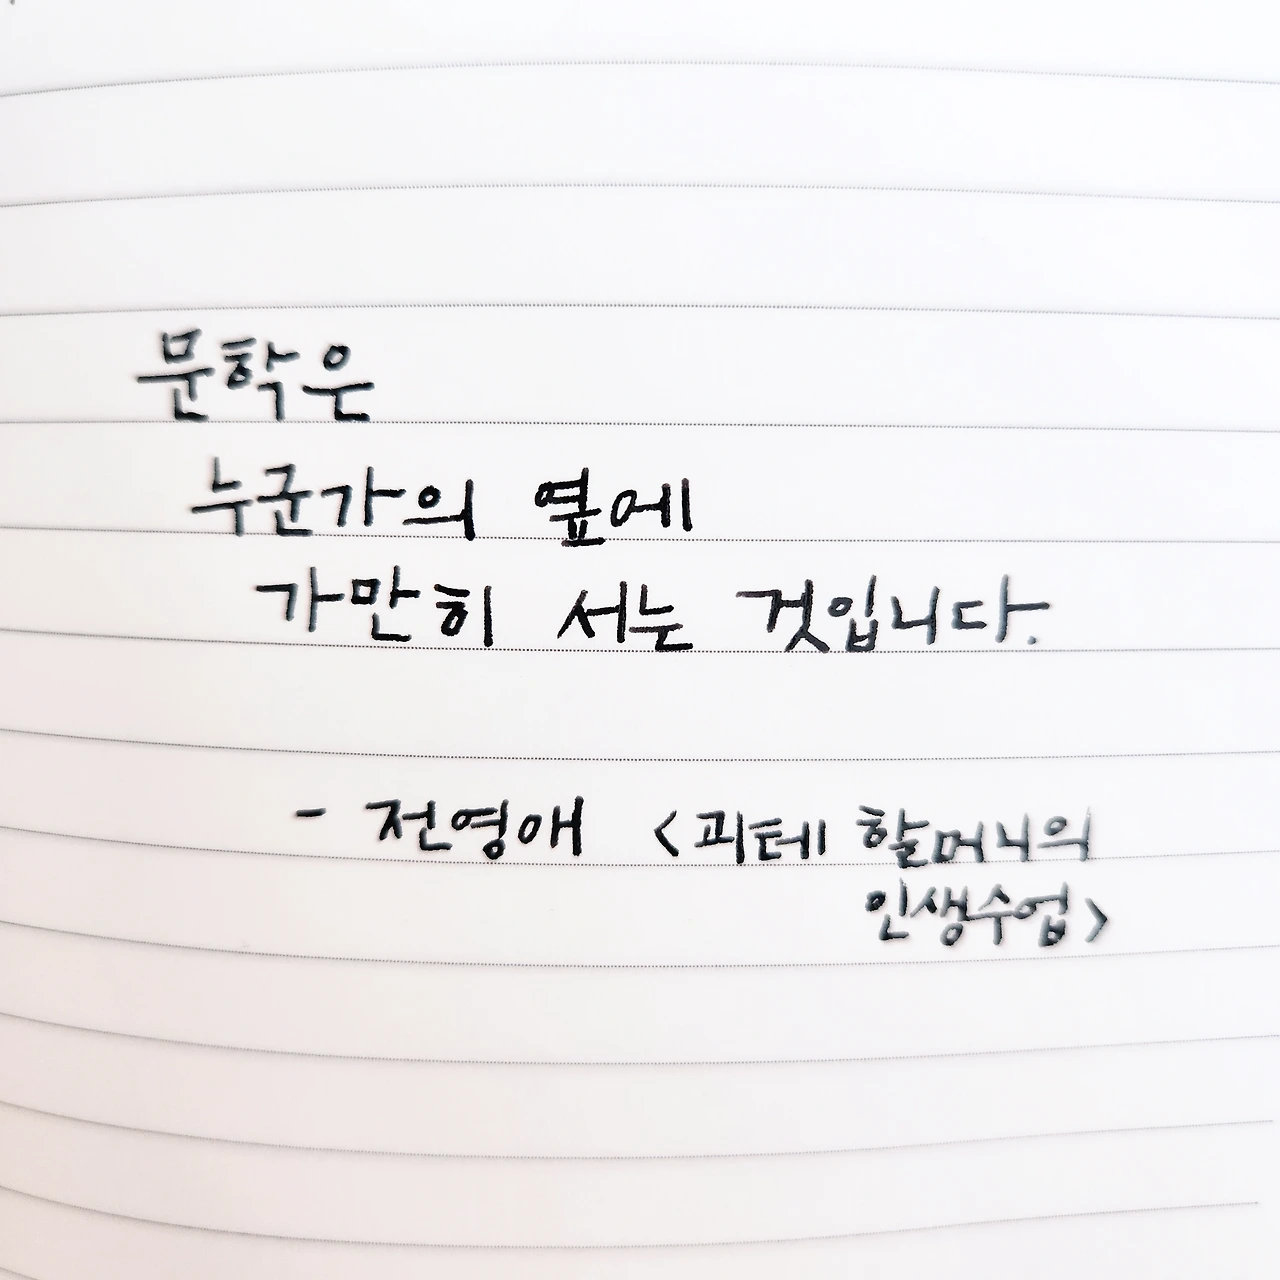 문학은
누군가의 옆에
가만히 서는 것입니다.
- 전영애 <괴테 할머니의
인생수업>